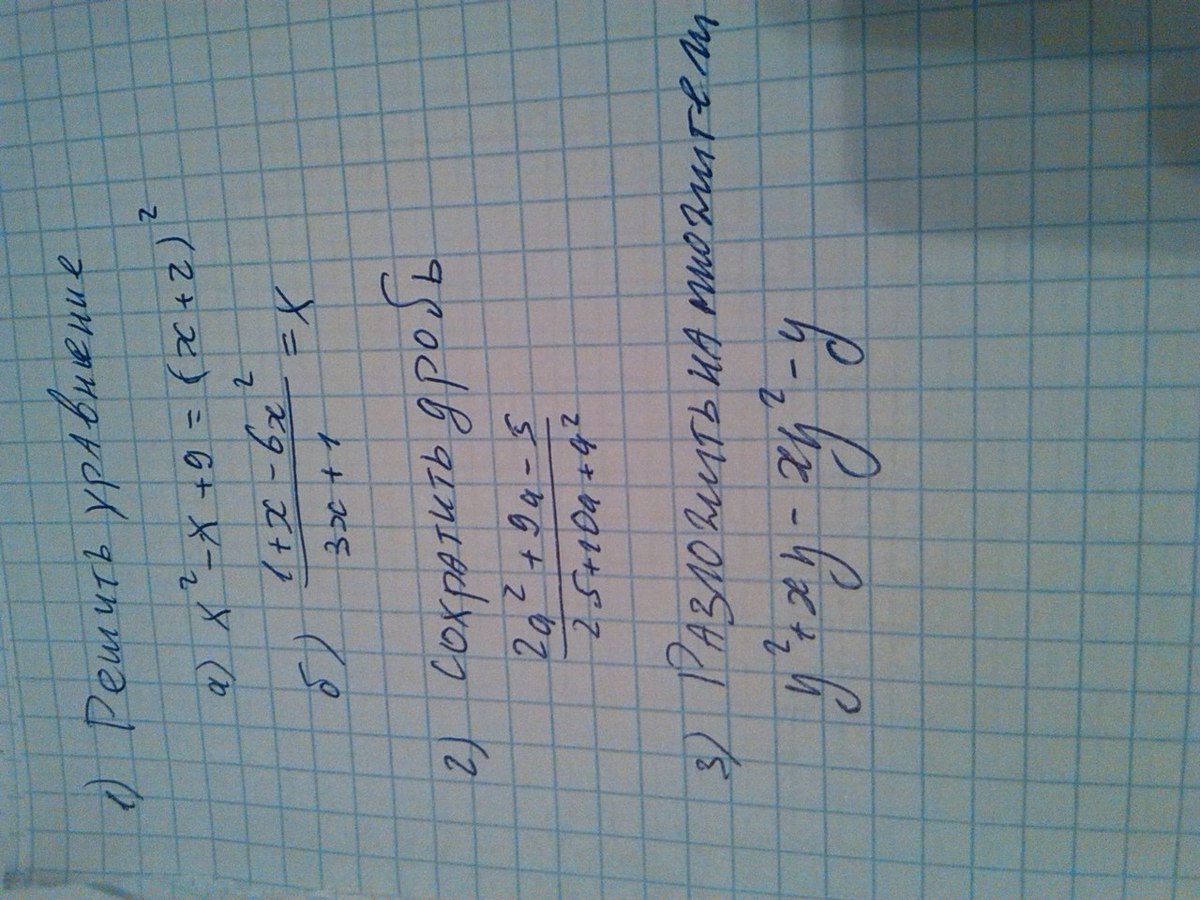 1) Решить уравнение
а) x² - x + 9 = (x + 2)²
б) (1 + x - 6x²)/(3x + 1) = x
2) сохратить дробь
(2a² + 9a - 5)/(25 + 10a + a²)
3) Разложить на множители
y² + xy - xy² - y